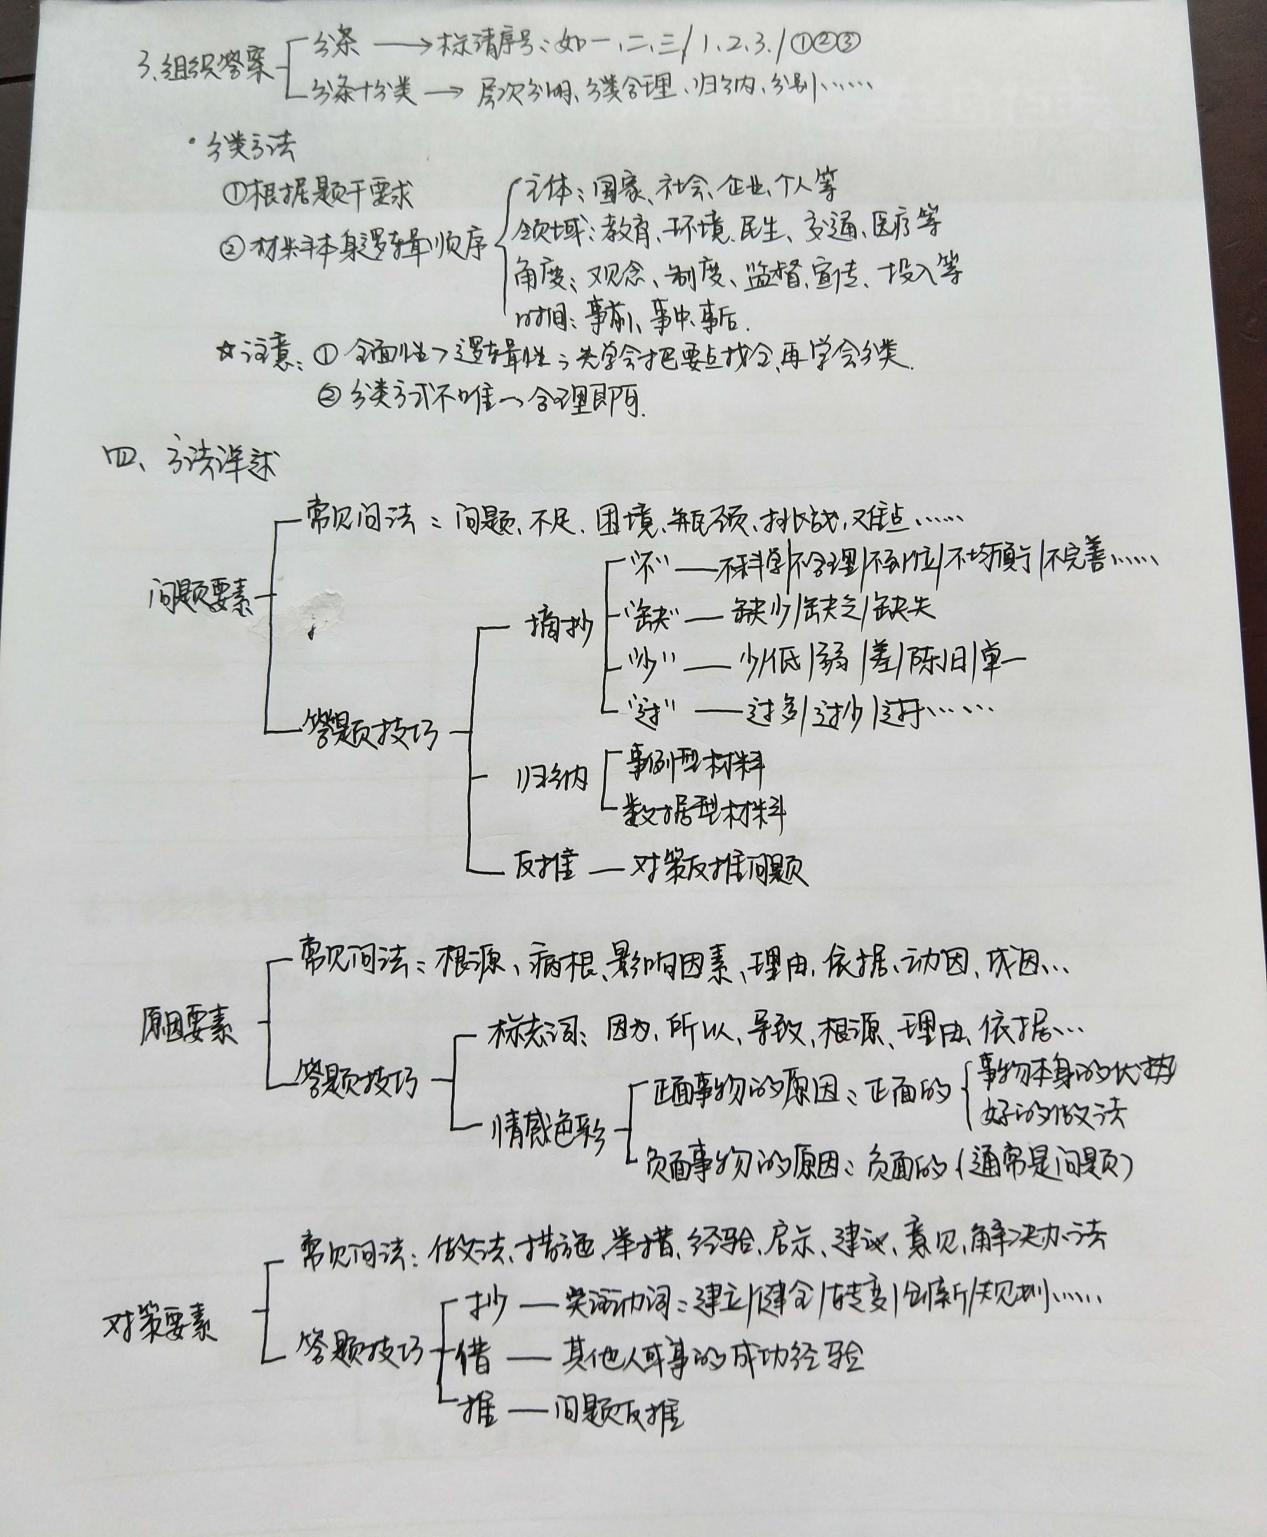 3、组织答案
分条 → 标清序号：如一、二、三/1、2、3、/①②③
分条+分类 → 层次分明、分类合理、归纳、分别……
·分类方法
①根据题干要求
②材料本身逻辑顺序
主体：国家、社会、企业、个人等
领域：教育、环境、民生、交通、医疗等
角度：观念、制度、监督、宣传、投入等
时间：事前、事中、事后.
☆注意：①全面性>逻辑性：先学会把要点找全，再学会分类.
②分类方式不唯一，合理即可.
四、方法详述
问题要素
常见问法：问题、不足、困境、瓶颈、挑战、难点……
答题技巧
摘抄
“不”——不科学/不合理/不到位/不均衡/不完善……
“缺”——缺少/缺乏/缺失
“少”——少/低/弱/差/陈旧/单一
“过”——过多/过少/过于……
归纳
事例型材料
数据型材料
反推——对策反推问题
原因要素
常见问法：根源、病根、影响因素、理由、依据、动因、成因…
答题技巧
标志词：因为、所以、导致、根源、理由、依据…
情感色彩
正面事物的原因：正面的
事物本身的优势
好的做法
负面事物的原因：负面的(通常是问题)
对策要素
常见问法：做法、措施、举措、经验、启示、建议、意见、解决办法
答题技巧
抄——实词动词：建立/健全/转变/创新/规划……
借——其他人或事的成功经验
推——问题反推